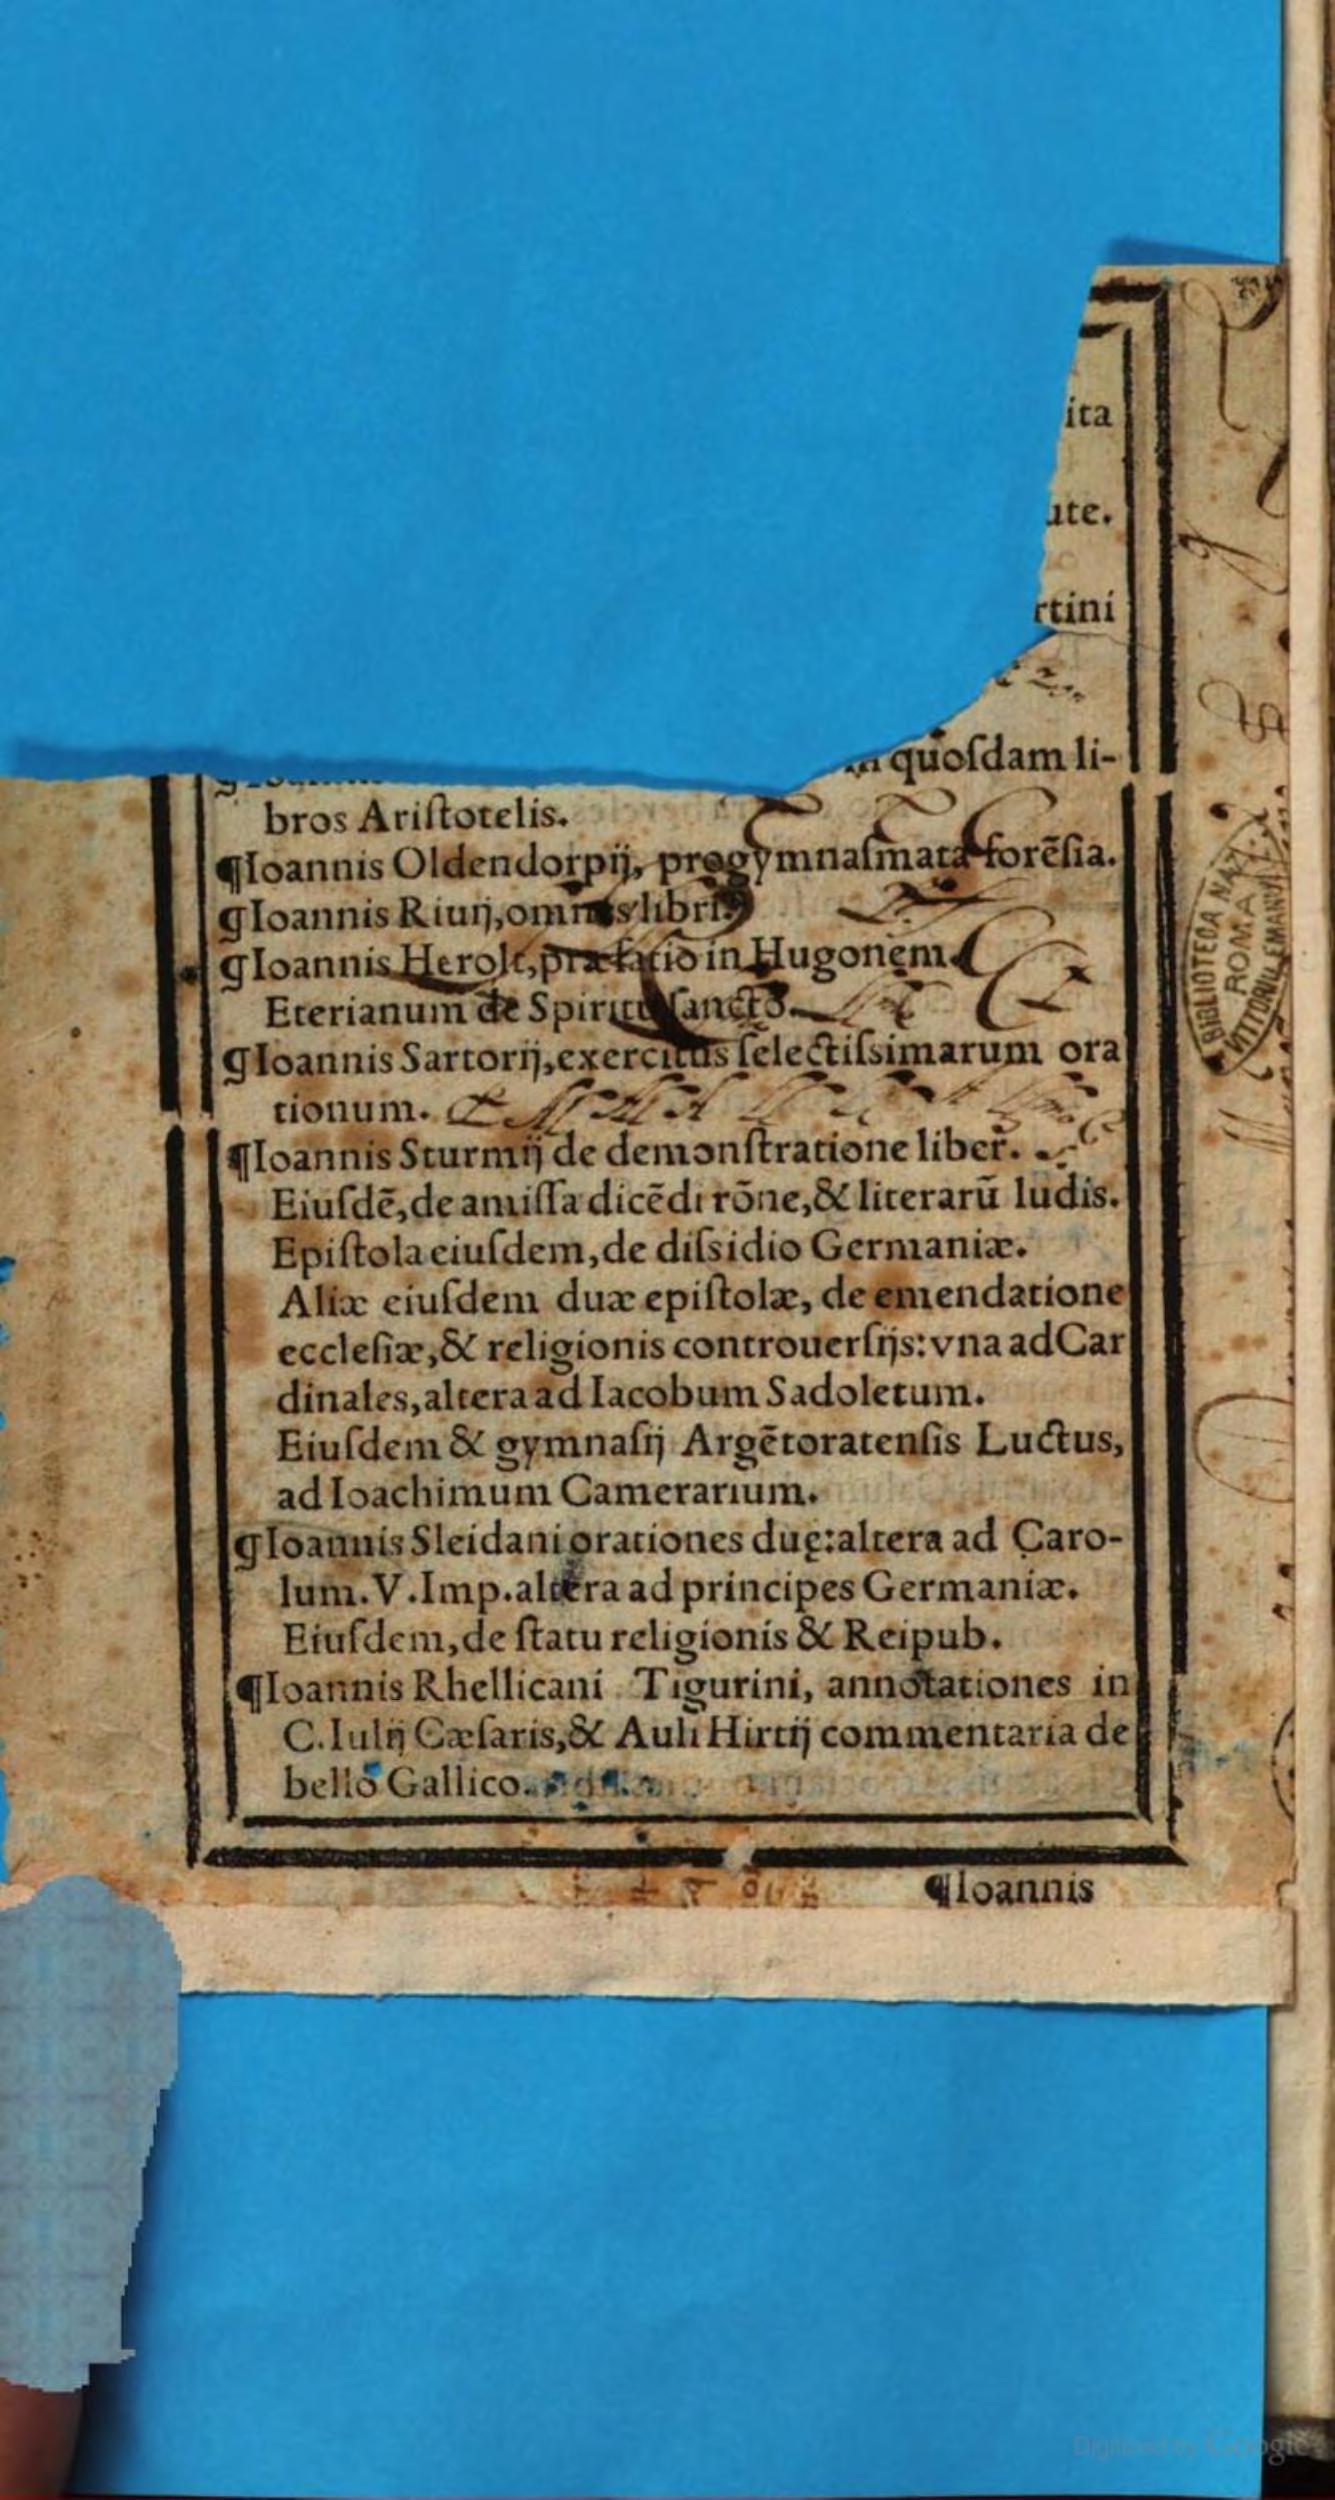 ita
ute.
rtini
quoſdam li-
bros Ariſtotelis.
¶Ioannis Oldendorpij, progymnaſmata forēſia.
¶Ioannis Riuij,omnes libri.
¶Ioannis Herolt,præfatio in Hugonem
Eterianum de Spiritu ſancto.
¶Ioannis Sartorij,exercitus ſelectiſsimarum ora
tionum.
¶Ioannis Sturmij de demonſtratione liber.
Eiuſdē,de amiſſa dicēdi rōne,& literarū ludis.
Epiſtola eiuſdem,de diſsidio Germaniæ.
Aliæ eiuſdem duæ epiſtolæ, de emendatione
eccleſiæ,& religionis controuerſijs:vna ad Car
dinales,altera ad Iacobum Sadoletum.
Eiuſdem & gymnaſij Argētoratenſis Luctus,
ad Ioachimum Camerarium.
¶Ioannis Sleidani orationes duę:altera ad Caro-
lum.V.Imp.altera ad principes Germaniæ.
Eiuſdem,de ſtatu religionis & Reipub.
¶Ioannis Rhellicani Tigurini, annotationes in
C.Iulij Cæſaris,& Auli Hirtij commentaria de
bello Gallico.
¶Ioannis
BIBLIOTECA NAZ.
ROMA
VITTORIO EMANUELE
Digitized by Google